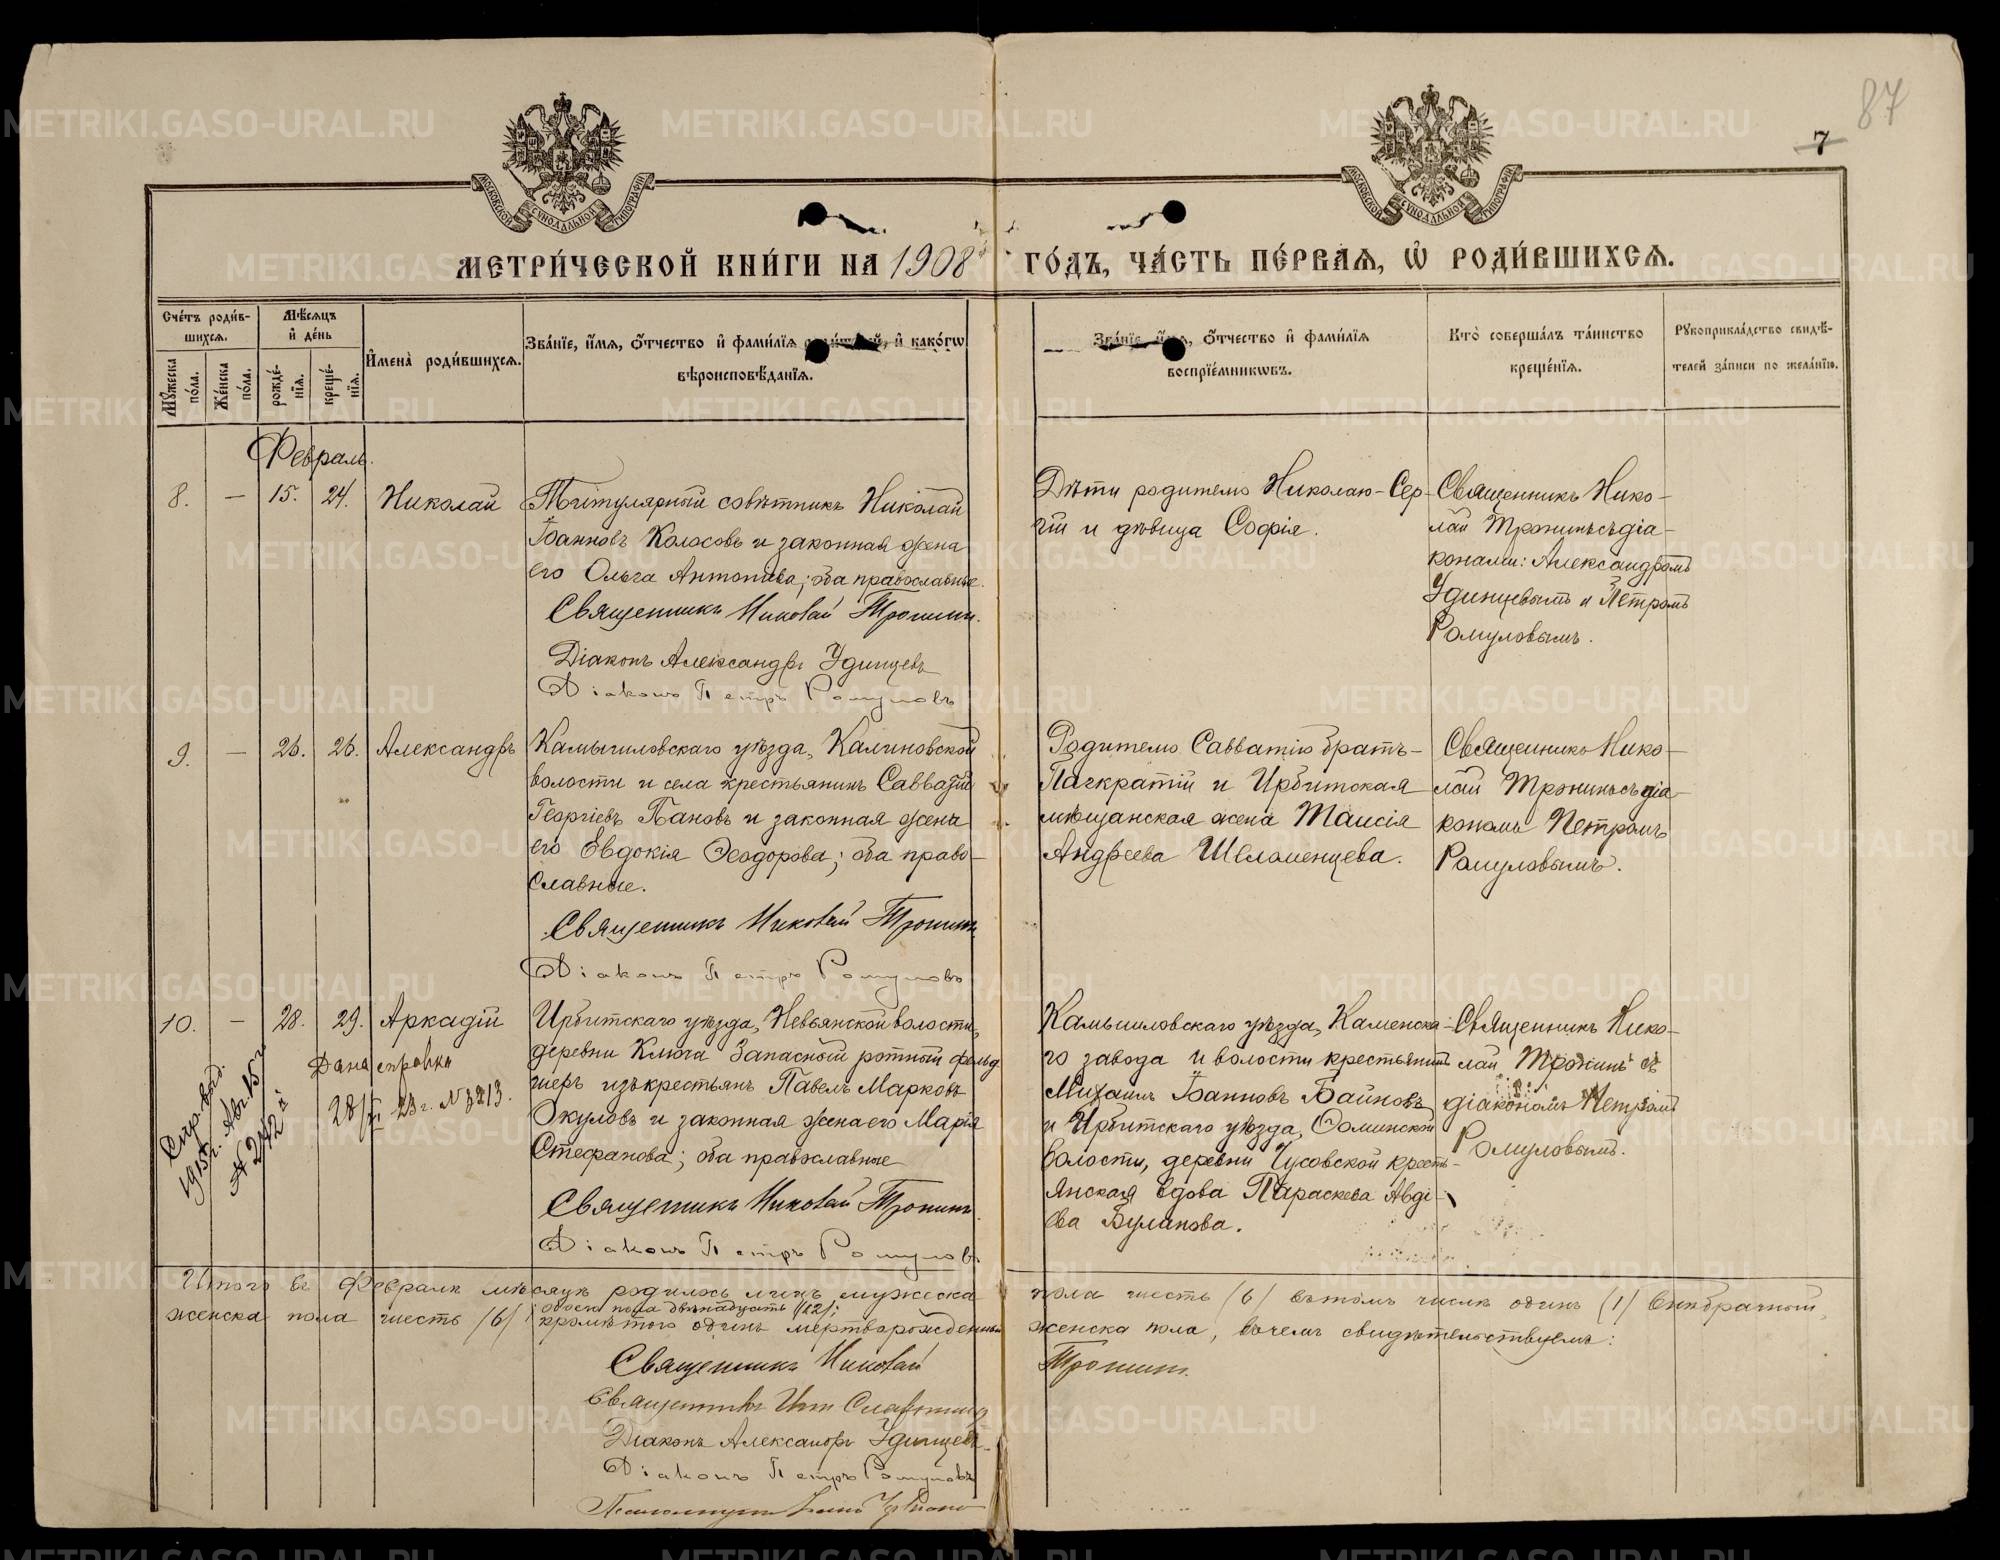 87
7
МОСКОВСКОЙ СУНОДАЛЬНОЙ ТИПОГРАФІИ
МОСКОВСКОЙ СУНОДАЛЬНОЙ ТИПОГРАФІИ
МЕТРИ́ЧЕСКОЙ КНИ́ГИ НА 1908 ГО́ДЪ, ЧА́СТЬ ПЕ́РВАЯ, Ѡ҆ РОДИ́ВШИХСЯ.
Сче́тъ роди́в-
шихся.
Мꙋ́жеска по́ла.
Же́нска по́ла.
Мѣ́сяцъ и҆ де́нь
рожде́-нїя.
креще́-нїя.
И҆мена̀ роди́вшихся.
Зва́нїе, и҆́мя, ѻ҆́тчество и҆ фами́лїя роди́телей, и҆ како́гѡ
вѣроисповѣ́данїя.
Зва́нїе, и҆́мя, ѻ҆́тчество и҆ фами́лїя
воспрїе́мникѡвъ.
Кто̀ соверша́лъ та́инство
креще́нїя.
Рꙋкоприкла́дство свидѣ́-
телей за́писи по жела́нїю.
Февраль.
8. — 15. 24. Николай
Титулярный совѣтникъ Николай
Іоанновъ Колосовъ и законная жена
его Ольга Антонова; оба православные.
Священникъ Николай Тронинъ.
Діаконъ Александръ Удинцевъ
Діаконъ Петръ Ромуловъ
Дѣти родителю Николаю – Сер-
гій и дѣвица Софія.
Священникъ Нико-
лай Тронинъ съ діа-
конами: Александромъ
Удинцевымъ и Петромъ
Ромуловымъ.
9. — 26. 26. Александръ
Камышловскаго уѣзда, Калиновской
волости и села крестьянинъ Савватій
Георгіевъ Пановъ и законная жена
его Евдокія Ѳеодорова; оба право-
славные.
Священникъ Николай Тронинъ
Діаконъ Петръ Ромуловъ
Родителю Савватію братъ –
Панкратій и Ирбитская
мѣщанская жена Таисія
Андреева Шеломенцева.
Священникъ Нико-
лай Тронинъ съ діа-
кономъ Петромъ
Ромуловымъ.
10. — 28. 29. Аркадій
Дана справка
28/XI 23 г. № 3213.
Спр. выд.
1915 г. Авг. 15
№ 242
Ирбитскаго уѣзда, Невьянской волости,
деревни Ключа Запасный ротный фельд
шеръ изъ крестьянъ Павелъ Марковъ
Окуловъ и законная жена его Марія
Стефанова; оба православные
Священникъ Николай Тронинъ.
Діаконъ Петръ Ромуловъ
Камышловскаго уѣзда, Каменска-
го завода и волости крестьянинъ
Михаилъ Іоанновъ Баиновъ
и Ирбитскаго уѣзда, Ѳоминской
волости, деревни Чусовской кресть-
янская вдова Параскева Авді-
ева Буланова.
Священникъ Нико-
лай Тронинъ съ
діакономъ Петромъ
Ромуловымъ.
Итого въ Февралѣ мѣсяцѣ родилось лицъ мужеска пола шесть /6/ въ томъ числѣ одинъ (1) внѣбрачный,
женска пола шесть /6/ обоего пола двѣнадцать /12/;
кромѣ того одинъ мертворожденный женска пола, въ чемъ свидѣтельствуемъ:
Священникъ Николай Тронинъ.
Священникъ
Діаконъ Александръ Удинцевъ.
Діаконъ Петръ Ромуловъ